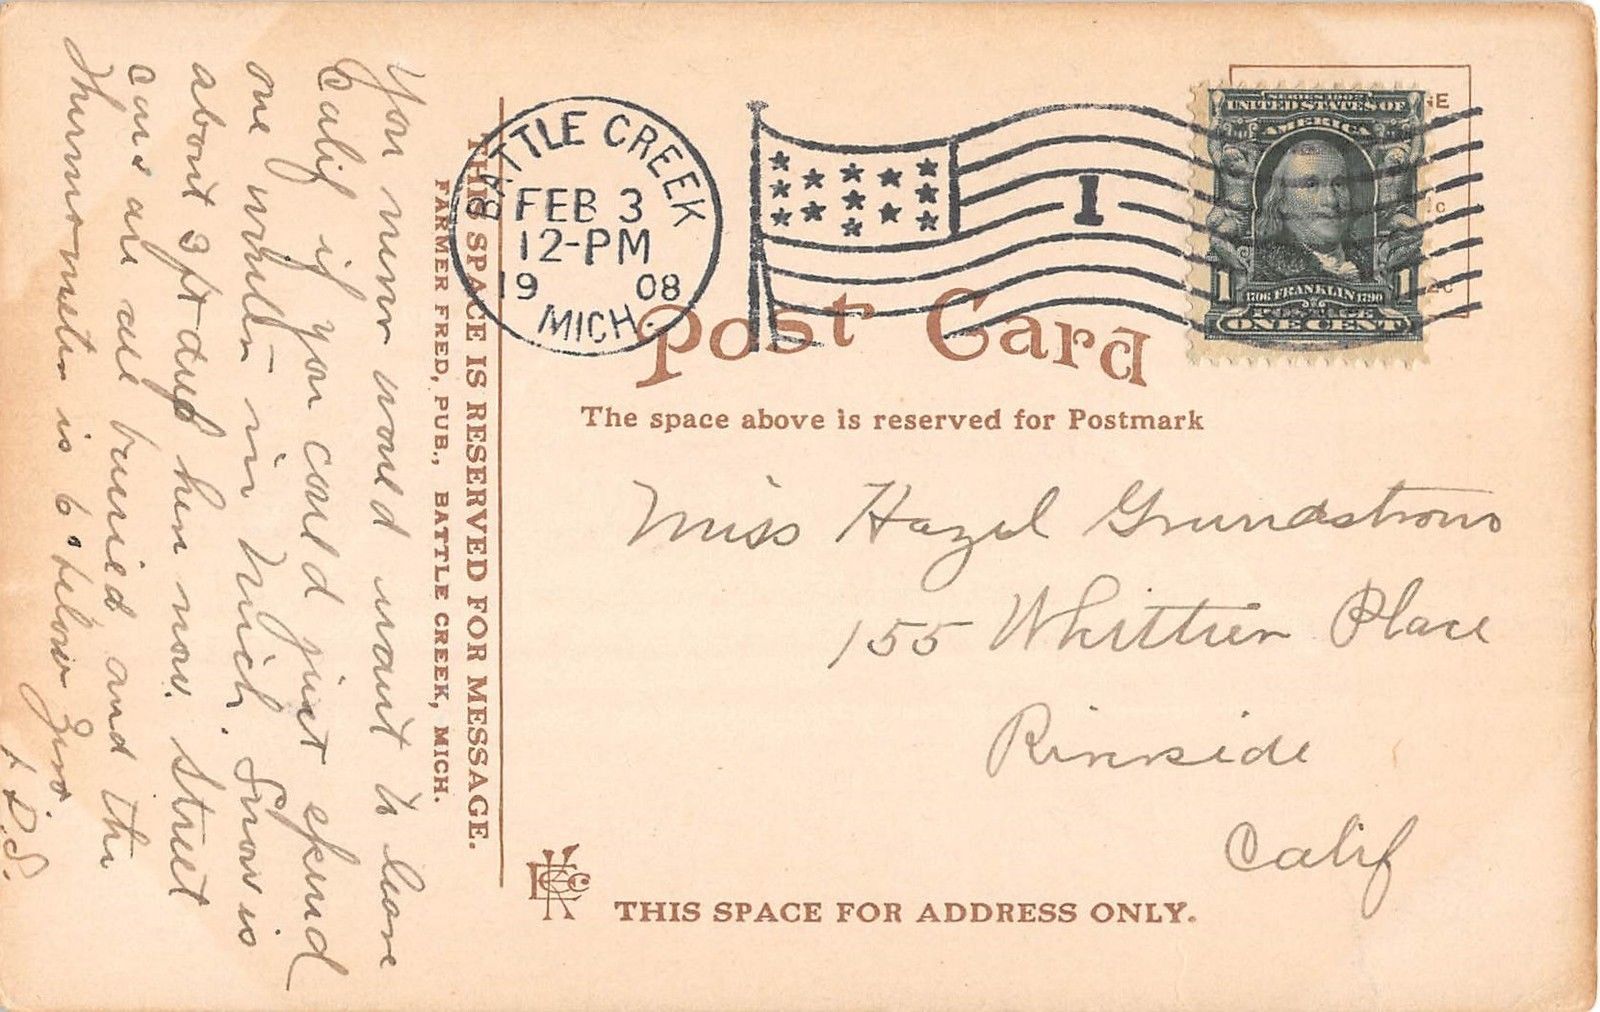 You never would want to leave
Calif if you could just spend
one winter in Mich. Snow is
about 3 ft deep here now. Street
cars are all burried and the
Thermometer is 6° below Zero.
D.S.
THIS SPACE IS RESERVED FOR MESSAGE.
FARMER FRED, PUB., BATTLE CREEK, MICH.
BATTLE CREEK
FEB 3
12-PM
1908
MICH.
1
SERIES 1902
UNITED STATES OF
AMERICA
1706 FRANKLIN 1790
1 1
POSTAGE
ONE CENT
Post Card
The space above is reserved for Postmark
Miss Hazel Grundstrom
155 Whittier Place
Riverside
Calif
THIS SPACE FOR ADDRESS ONLY.